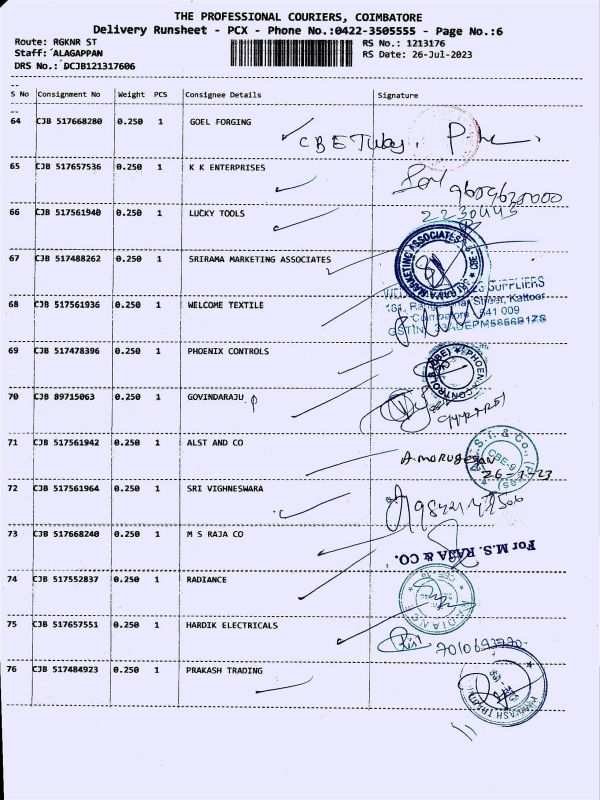 THE PROFESSIONAL COURIERS, COIMBATORE
Delivery Runsheet - PCX - Phone No.:0422-3505555 - Page No.:6
Route: RGKNR ST
RS No.: 1213176
Staff: ALAGAPPAN
RS Date: 26-Jul-2023
DRS No.: DCJB121317606
S No Consignment No Weight PCS Consignee Details Signature
64 CJB 517668280 0.250 1 GOEL FORGING
CBE Tubes.
65 CJB 517657536 0.250 1 K K ENTERPRISES
66 CJB 517561940 0.250 1 LUCKY TOOLS
2230445
67 CJB 517488262 0.250 1 SRIRAMA MARKETING ASSOCIATES
SRI RAMA MARKETING ASSOCIATES
SUPPLIERS
Street, Kattoor
Coimbatore 641 009
68 CJB 517561936 0.250 1 WELCOME TEXTILE
69 CJB 517478396 0.250 1 PHOENIX CONTROLS
PHOENIX CONTROLS (CBE)
70 CJB 89715063 0.250 1 GOVINDARAJU
71 CJB 517561942 0.250 1 ALST AND CO
CBE-9
A. MORUGESAN
26-7-23
72 CJB 517561964 0.250 1 SRI VIGHNESWARA
73 CJB 517668240 0.250 1 M S RAJA CO
For M.S. RAJA & CO.
74 CJB 517552837 0.250 1 RADIANCE
RADIANCE
75 CJB 517657551 0.250 1 HARDIK ELECTRICALS
76 CJB 517484923 0.250 1 PRAKASH TRADING